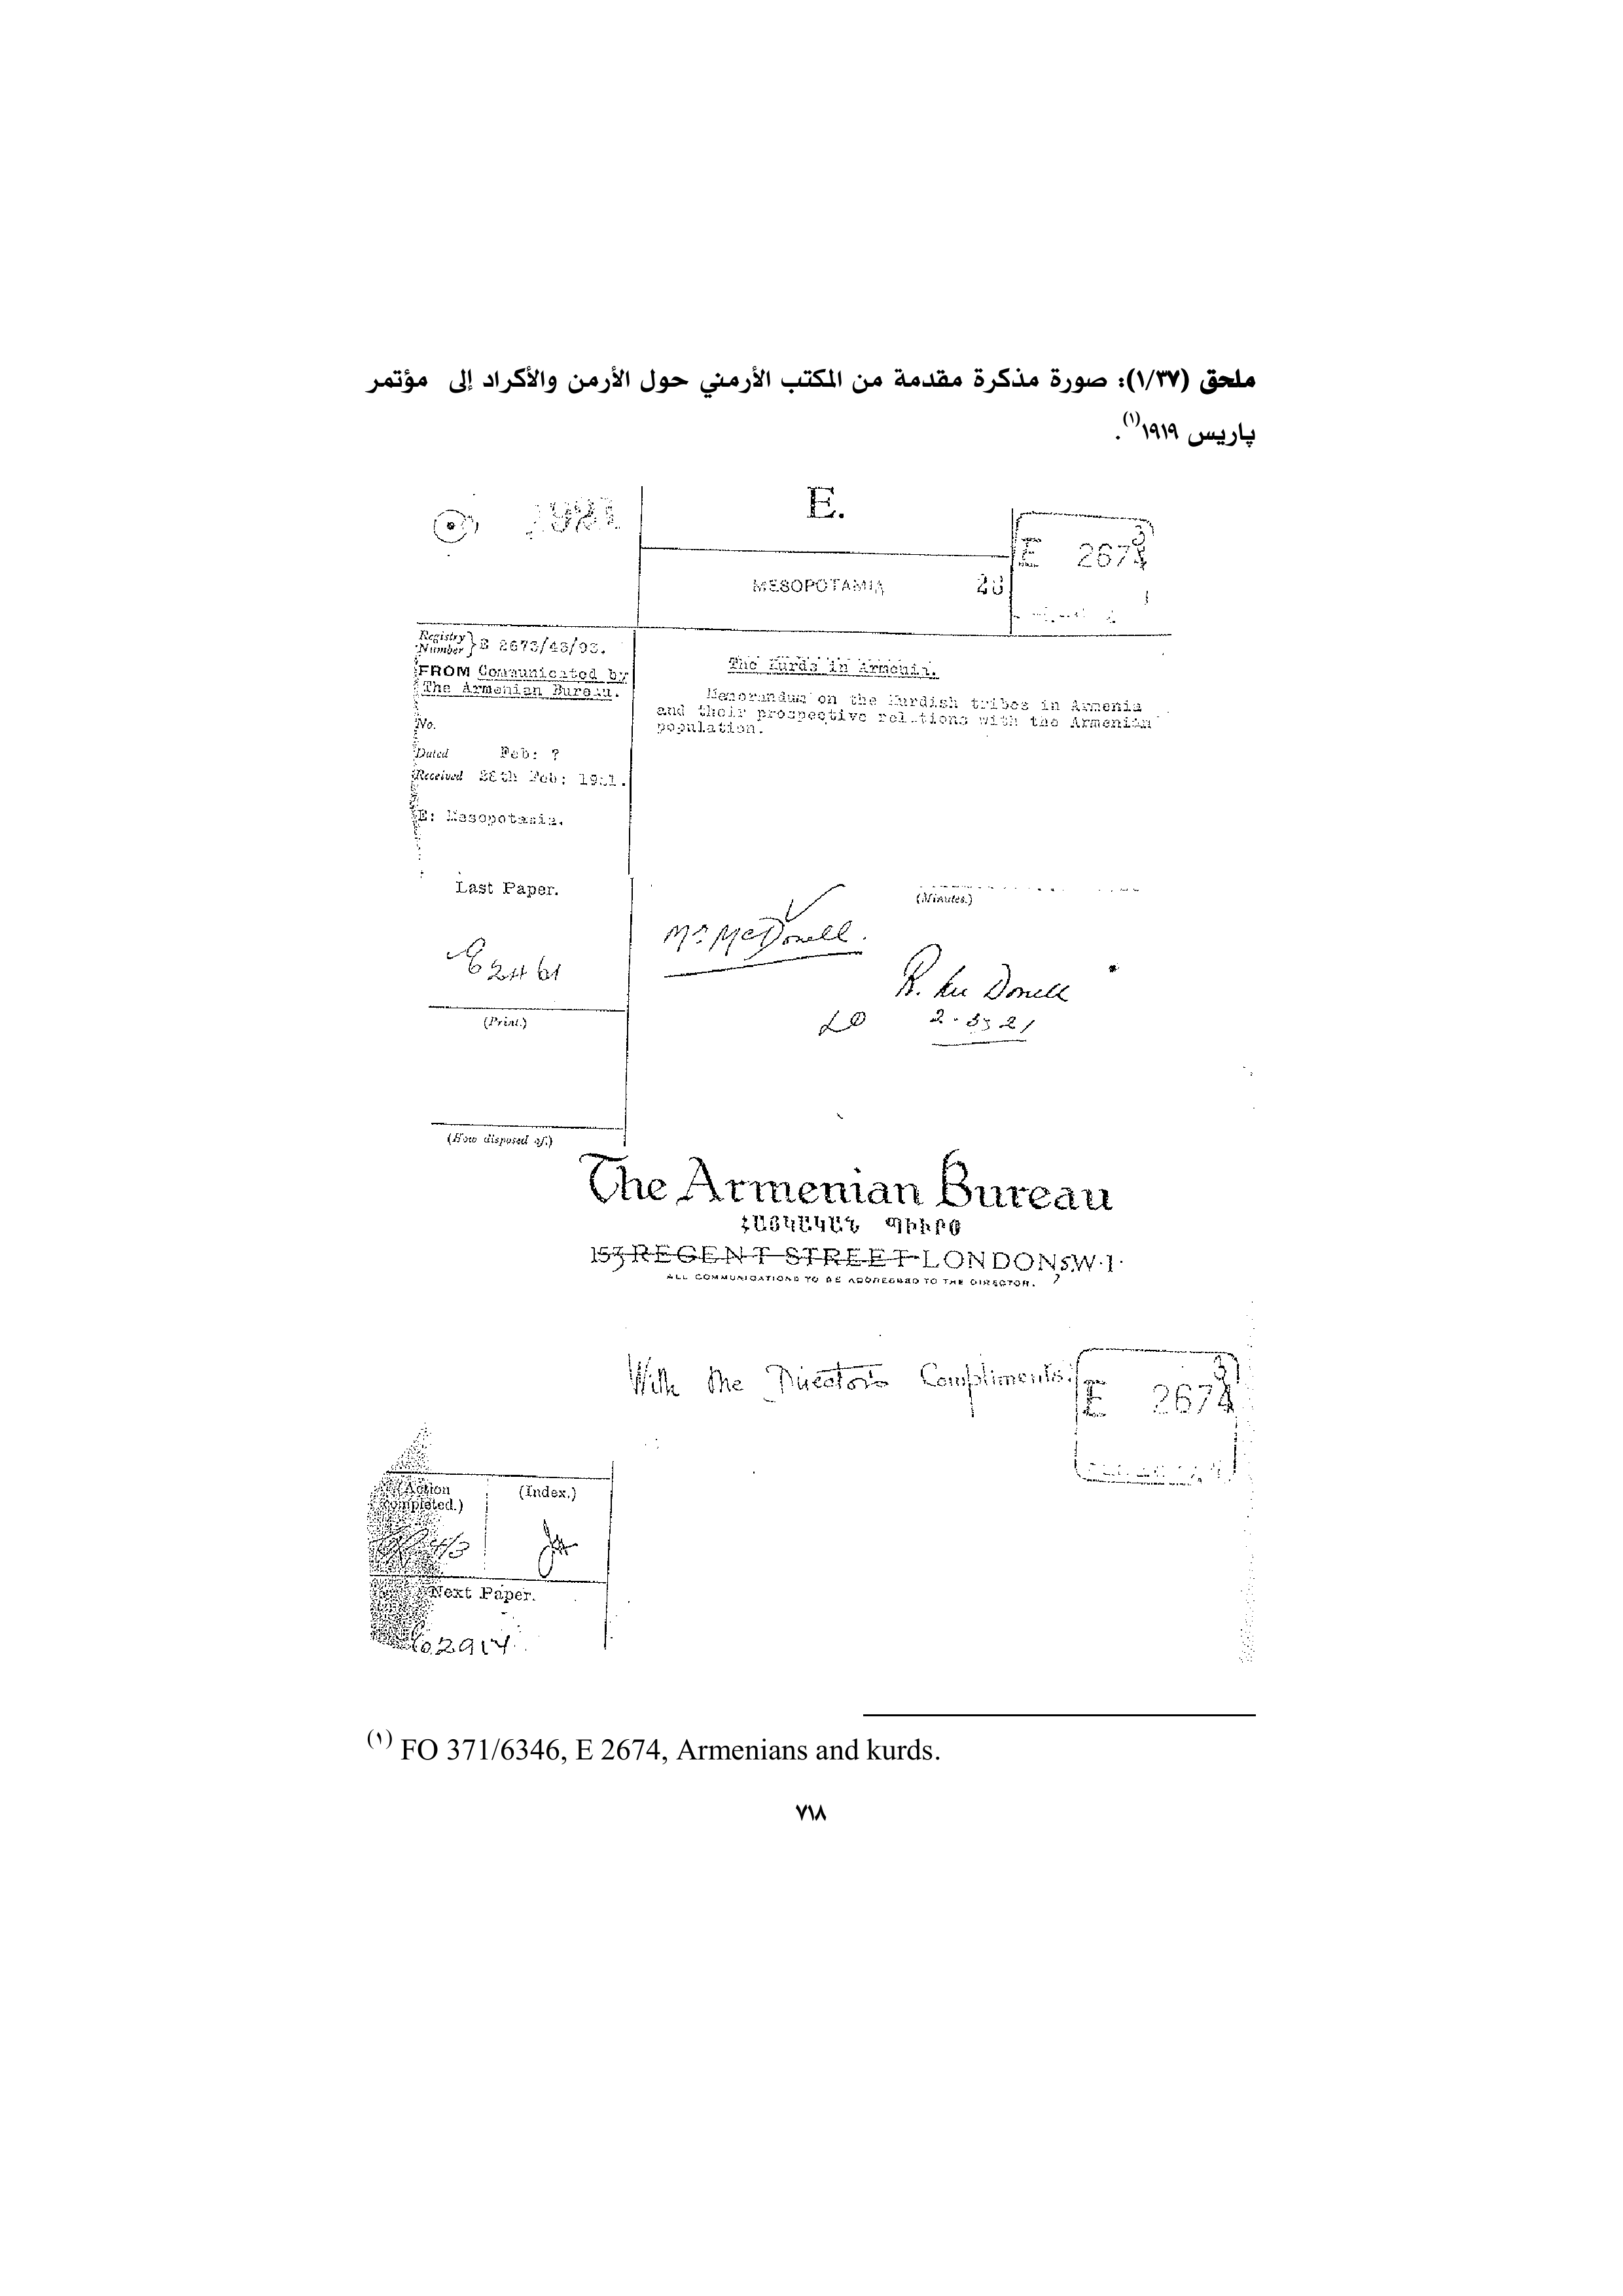 ملحق (١/٣٧): صورة مذكرة مقدمة من المكتب الأرمني حول الأرمن والأكراد إلى مؤتمر
پاريس ١٩١٩(١).
1921
E.
E 2673
MESOPOTAMIA
28
Registry Number } E 2673/43/93.
FROM Communicated by
The Armenian Bureau.
No.
Dated Feb: ?
Received 28th Feb: 1921.
E: Mesopotamia.
The Kurds in Armenia.
Memorandum on the Kurdish tribes in Armenia
and their prospective relations with the Armenian
population.
Last Paper.
E2461
(Print.)
(How disposed of.)
(Minutes.)
Mr McDonell.
R. Mc Donell
2.3.21
The Armenian Bureau
ՀԱՅԿԱԿԱՆ ՊԻՒՐՕ
153 REGENT STREET LONDON S.W.1.
ALL COMMUNICATIONS TO BE ADDRESSED TO THE DIRECTOR.
With the Director's Compliments.
E 2674
3
(Action completed.)
4/3
(Index.)
Next Paper.
E2914
(١) FO 371/6346, E 2674, Armenians and kurds.
٧١٨